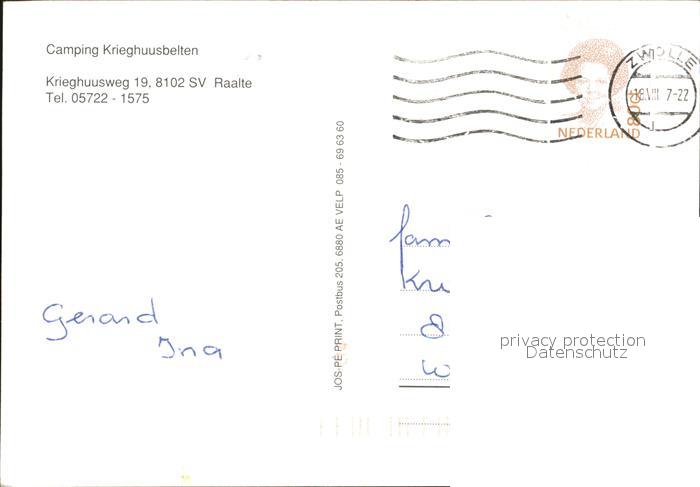 Camping Krieghuusbelten
Krieghuusweg 19, 8102 SV Raalte
Tel. 05722 - 1575
Gerard
Ina
JOS-PÉ PRINT, Postbus 205, 6880 AE VELP 085 - 69 63 60
ZWOLLE
18.VIII 7-22
80c
NEDERLAND
fam
Kru
8
W
privacy protection
Datenschutz